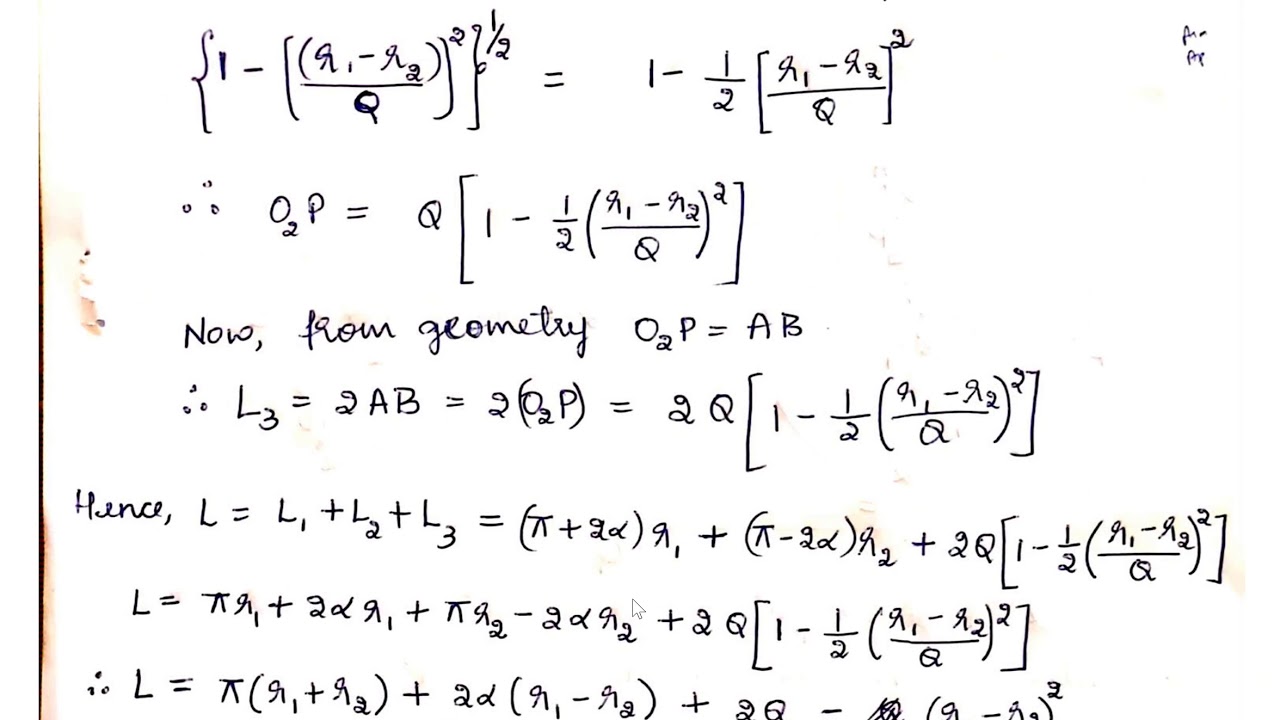 {1 - [(r₁ - r₂)/Q]²}^1/2 = 1 - 1/2 [r₁ - r₂/Q]²
∴ O₂P = Q[1 - 1/2 (r₁ - r₂/Q)²]
Now, from geometry O₂P = AB
∴ L₃ = 2AB = 2(O₂P) = 2Q[1 - 1/2 (r₁ - r₂/Q)²]
Hence, L = L₁ + L₂ + L₃ = (π + 2α)r₁ + (π - 2α)r₂ + 2Q[1 - 1/2 (r₁ - r₂/Q)²]
L = πr₁ + 2αr₁ + πr₂ - 2αr₂ + 2Q[1 - 1/2 (r₁ - r₂/Q)²]
∴ L = π(r₁ + r₂) + 2α(r₁ - r₂) + 2Q - (r₁ - r₂)²